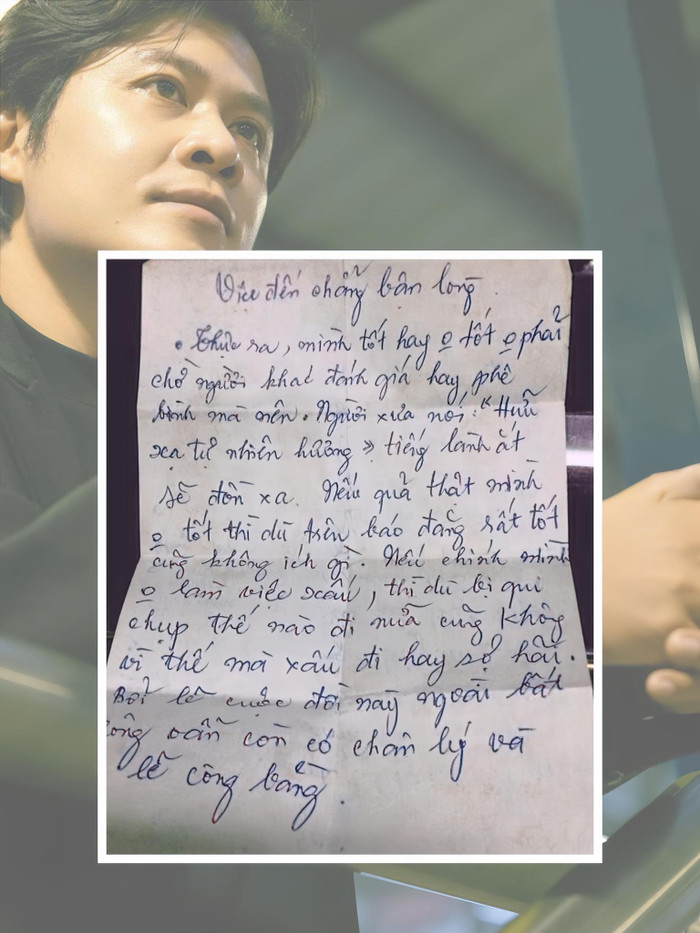 Việc đến chẳng bận lòng.
• Thực ra, mình tốt hay o tốt o phải
chờ người khác đánh giá hay phê
bình mà nên. Người xưa nói: "Hữu
xạ tự nhiên hương" tiếng lành ắt
sẽ đồn xa. Nếu quả thật mình
o tốt thì dù trên báo đăng rất tốt
cũng không ích gì. Nếu chính mình
o làm việc xấu, thì dù bị qui
chụp thế nào đi nữa cũng không
vì thế mà xấu đi hay sợ hãi.
Bởi lẽ cuộc đời này ngoài bất
công vẫn còn có chân lý và
lẽ công bằng.